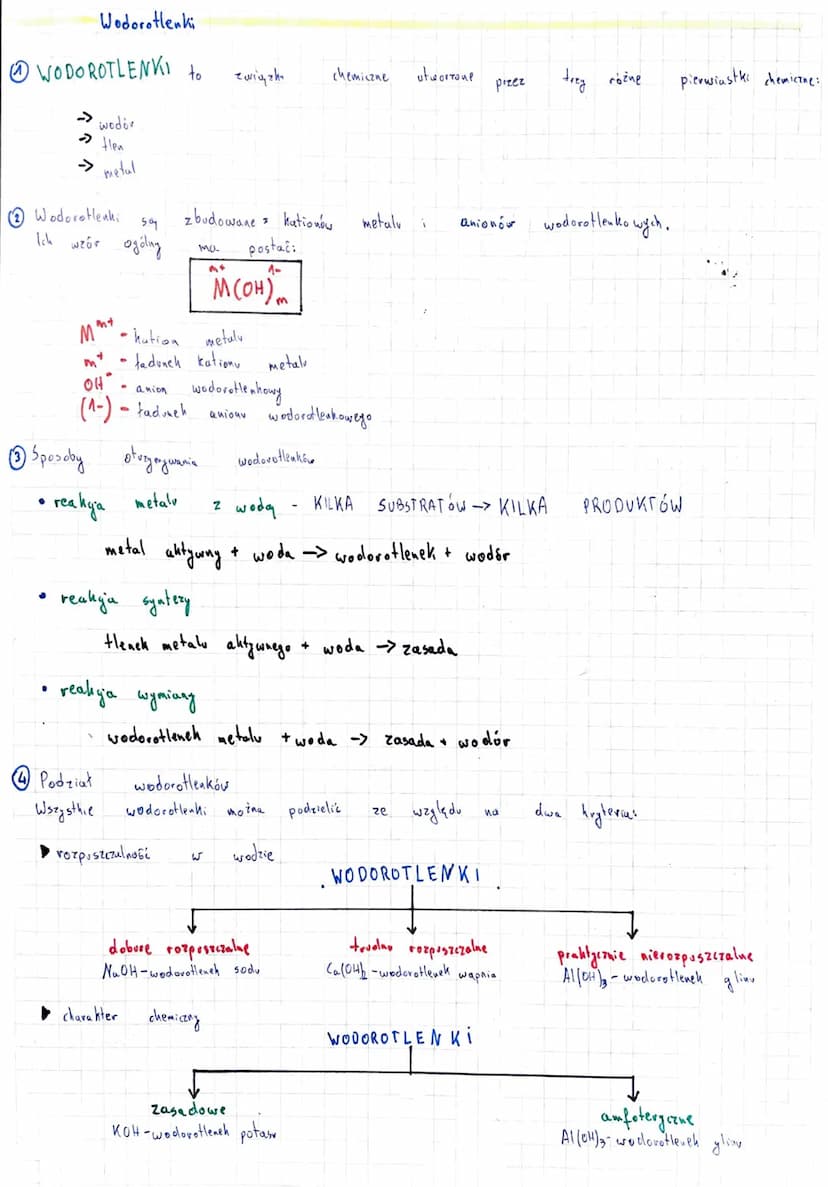 Wodorotlenki
① WODOROTLENKI to związki chemiczne utworzone przez trzy różne pierwiastki chemiczne:
→ wodór
→ tlen
→ metal
② Wodorotlenki są zbudowane z kationów metalu i anionów wodorotlenkowych.
Ich wzór ogólny ma postać:
m+ 1-
M(OH)m
Mm+ - kation metalu
m+ - ładunek kationu metalu
OH- - anion wodorotlenkowy
(1-) - ładunek anionu wodorotlenkowego
③ Sposoby otrzymywania wodorotlenków
• reakcja metalu z wodą - KILKA SUBSTRATÓW → KILKA PRODUKTÓW
metal aktywny + woda → wodorotlenek + wodór
• reakcja syntezy
tlenek metalu aktywnego + woda → zasada
• reakcja wymiany
wodorotlenek metalu + woda → zasada + wodór
④ Podział wodorotlenków
Wszystkie wodorotlenki można podzielić ze względu na dwa kryteria:
▶ rozpuszczalność w wodzie
WODOROTLENKI
dobrze rozpuszczalne trudno rozpuszczalne praktycznie nierozpuszczalne
NaOH-wodorotlenek sodu Ca(OH)2-wodorotlenek wapnia Al(OH)3-wodorotlenek glinu
▶ charakter chemiczny
WODOROTLENKI
zasadowe amfoteryczne
KOH-wodorotlenek potasu Al(OH)3-wodorotlenek glinu